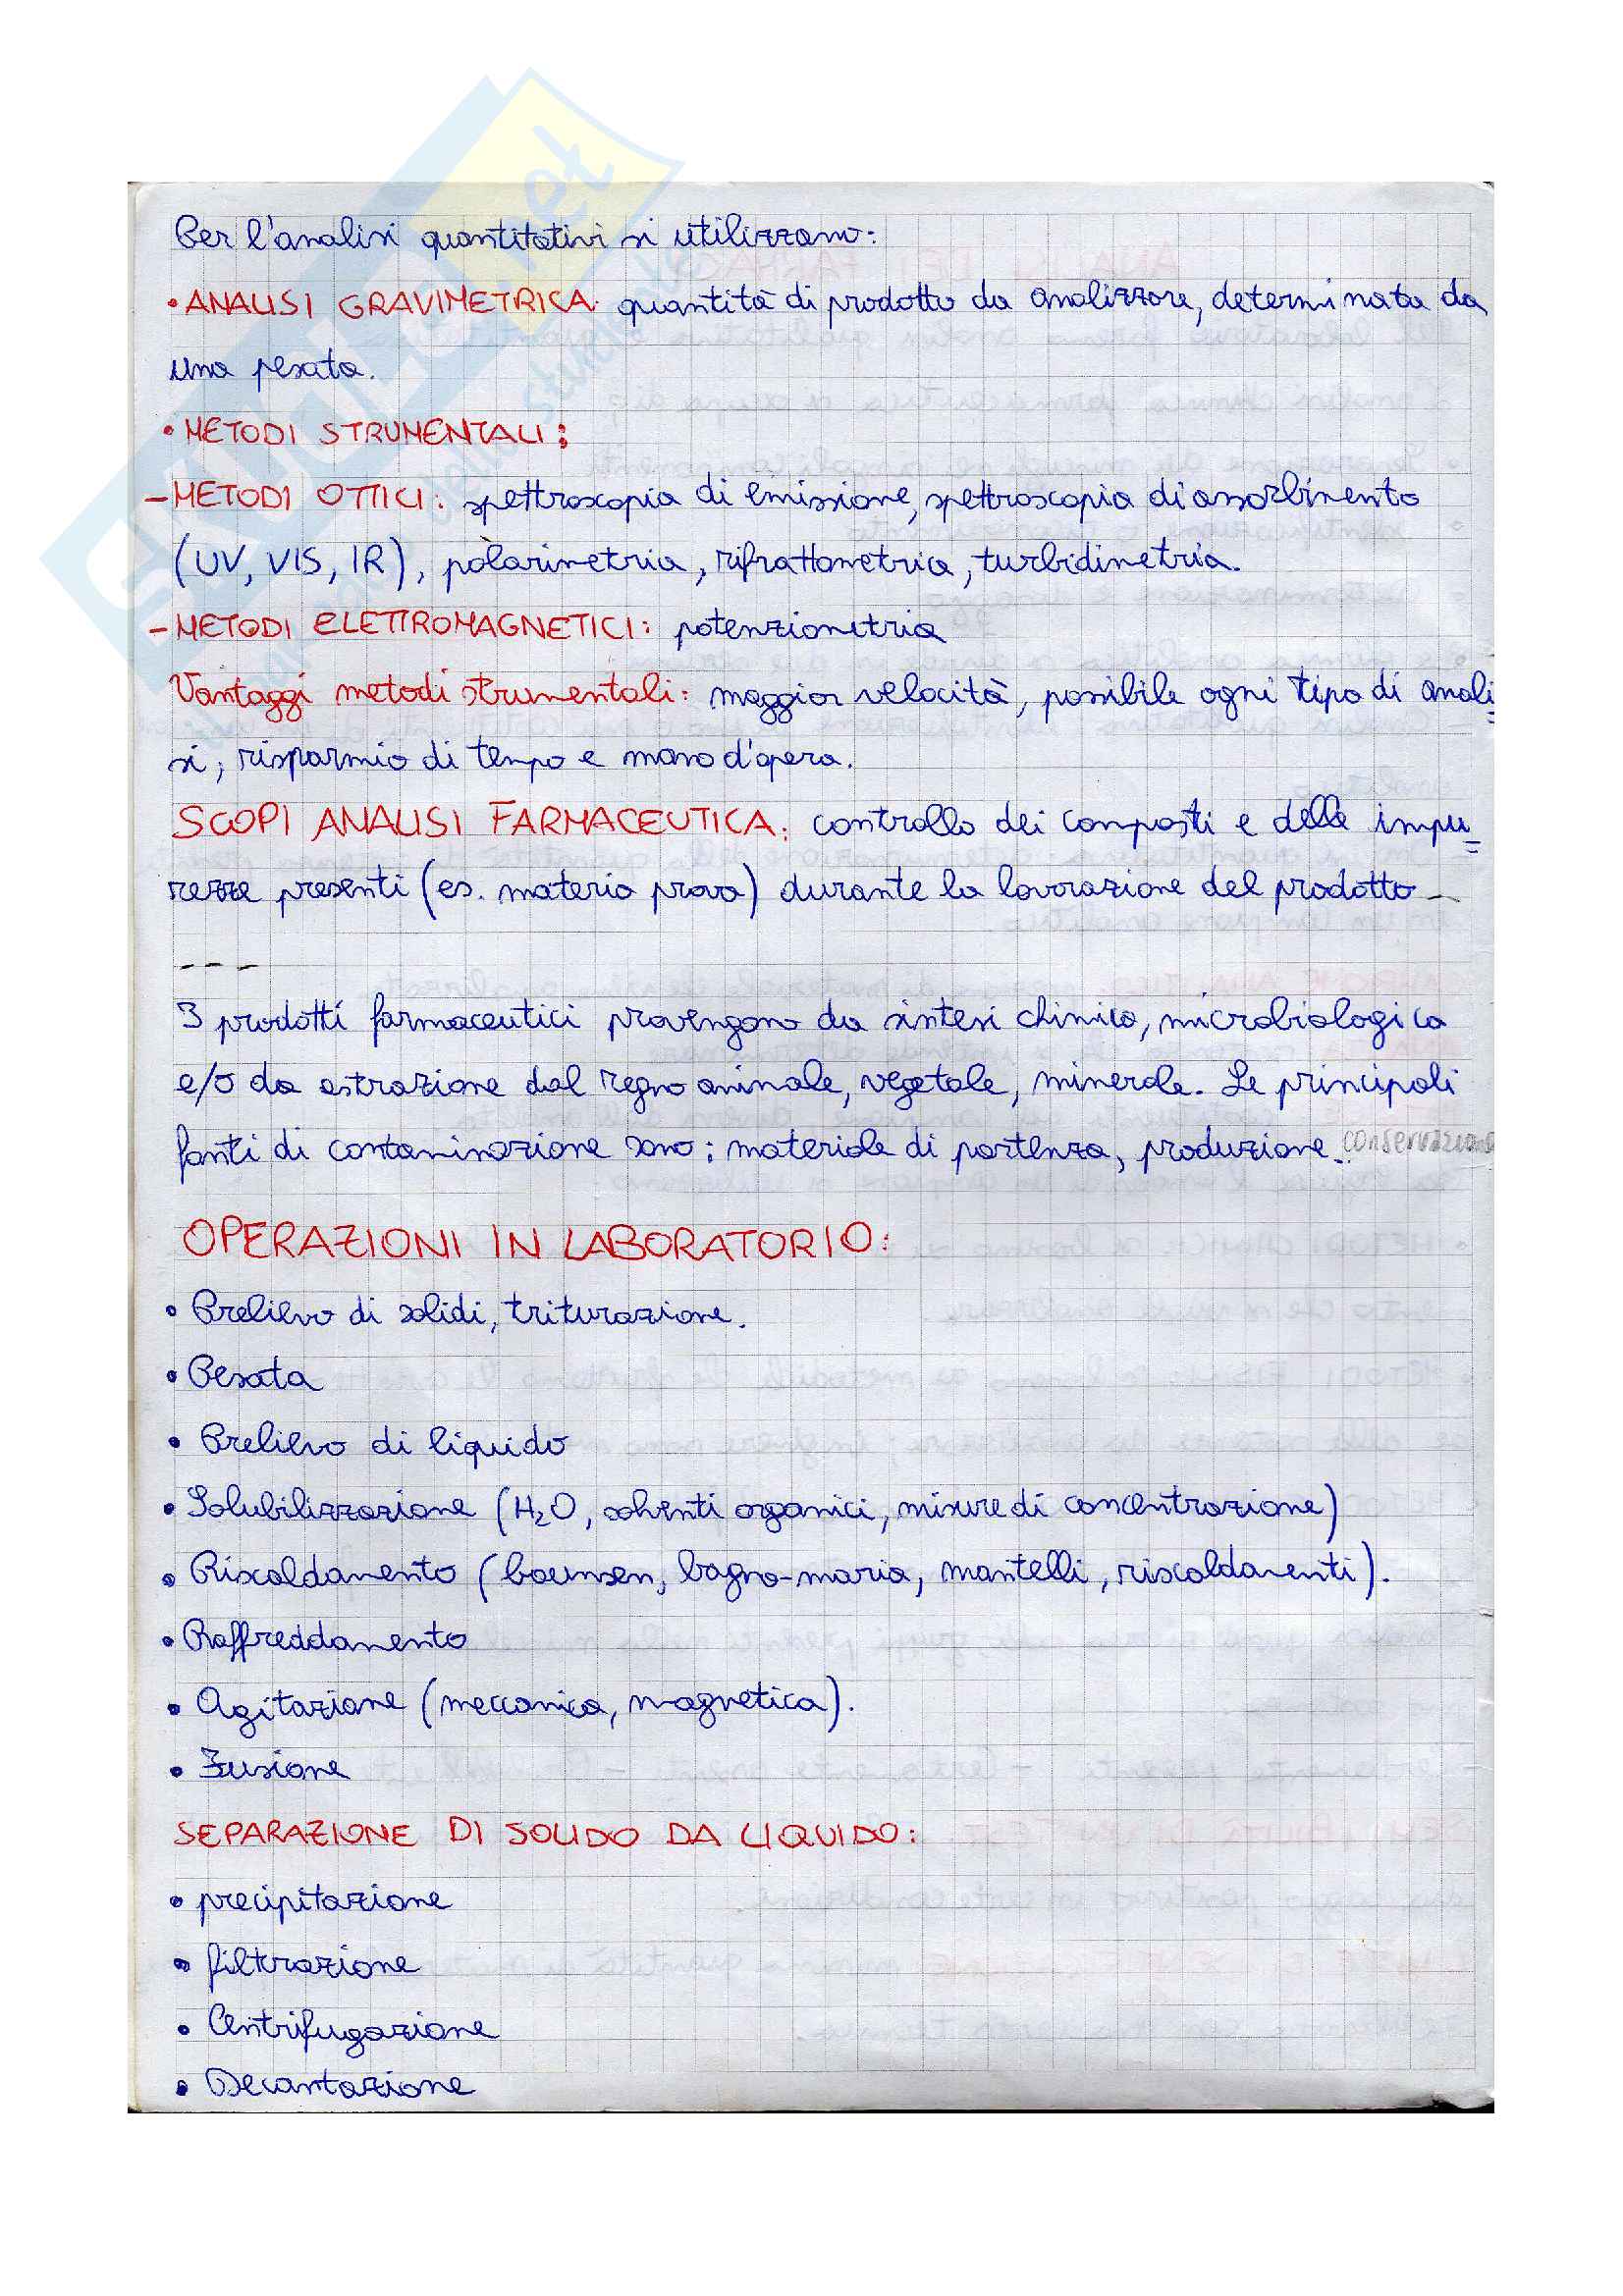 Per l'analisi quantitativi si utilizzano:
• ANALISI GRAVIMETRICA: quantità di prodotto da analizzare, determinata da
una pesata.
• METODI STRUMENTALI:
- METODI OTTICI: spettroscopia di emissione, spettroscopia di assorbimento
(UV, VIS, IR), polarimetria, rifrattometria, turbidimetria.
- METODI ELETTROMAGNETICI: potenziometria
Vantaggi metodi strumentali: maggior velocità, possibile ogni tipo di anali=
si, risparmio di tempo e mano d'opera.
SCOPI ANALISI FARMACEUTICA: controllo dei composti e delle impu=
rezze presenti (es. materia prova) durante la lavorazione del prodotto -
- - -
I prodotti farmaceutici provengono da sintesi chimica, microbiologica
e/o da estrazione dal regno animale, vegetale, minerale. Le principali
fonti di contaminazione sono: materiale di partenza, produzione. conservazione
OPERAZIONI IN LABORATORIO:
• Prelievo di solidi, triturazione.
• Pesata
• Prelievo di liquido
• Solubilizzazione (H₂O, solventi organici, misure di concentrazione)
• Riscaldamento (bounsen, bagno-maria, mantelli, riscaldamenti).
• Raffreddamento
• Agitazione (meccanica, magnetica).
• Fusione
SEPARAZIONE DI SOLIDO DA LIQUIDO:
• precipitazione
• filtrazione
• Centrifugazione
• Decantazione